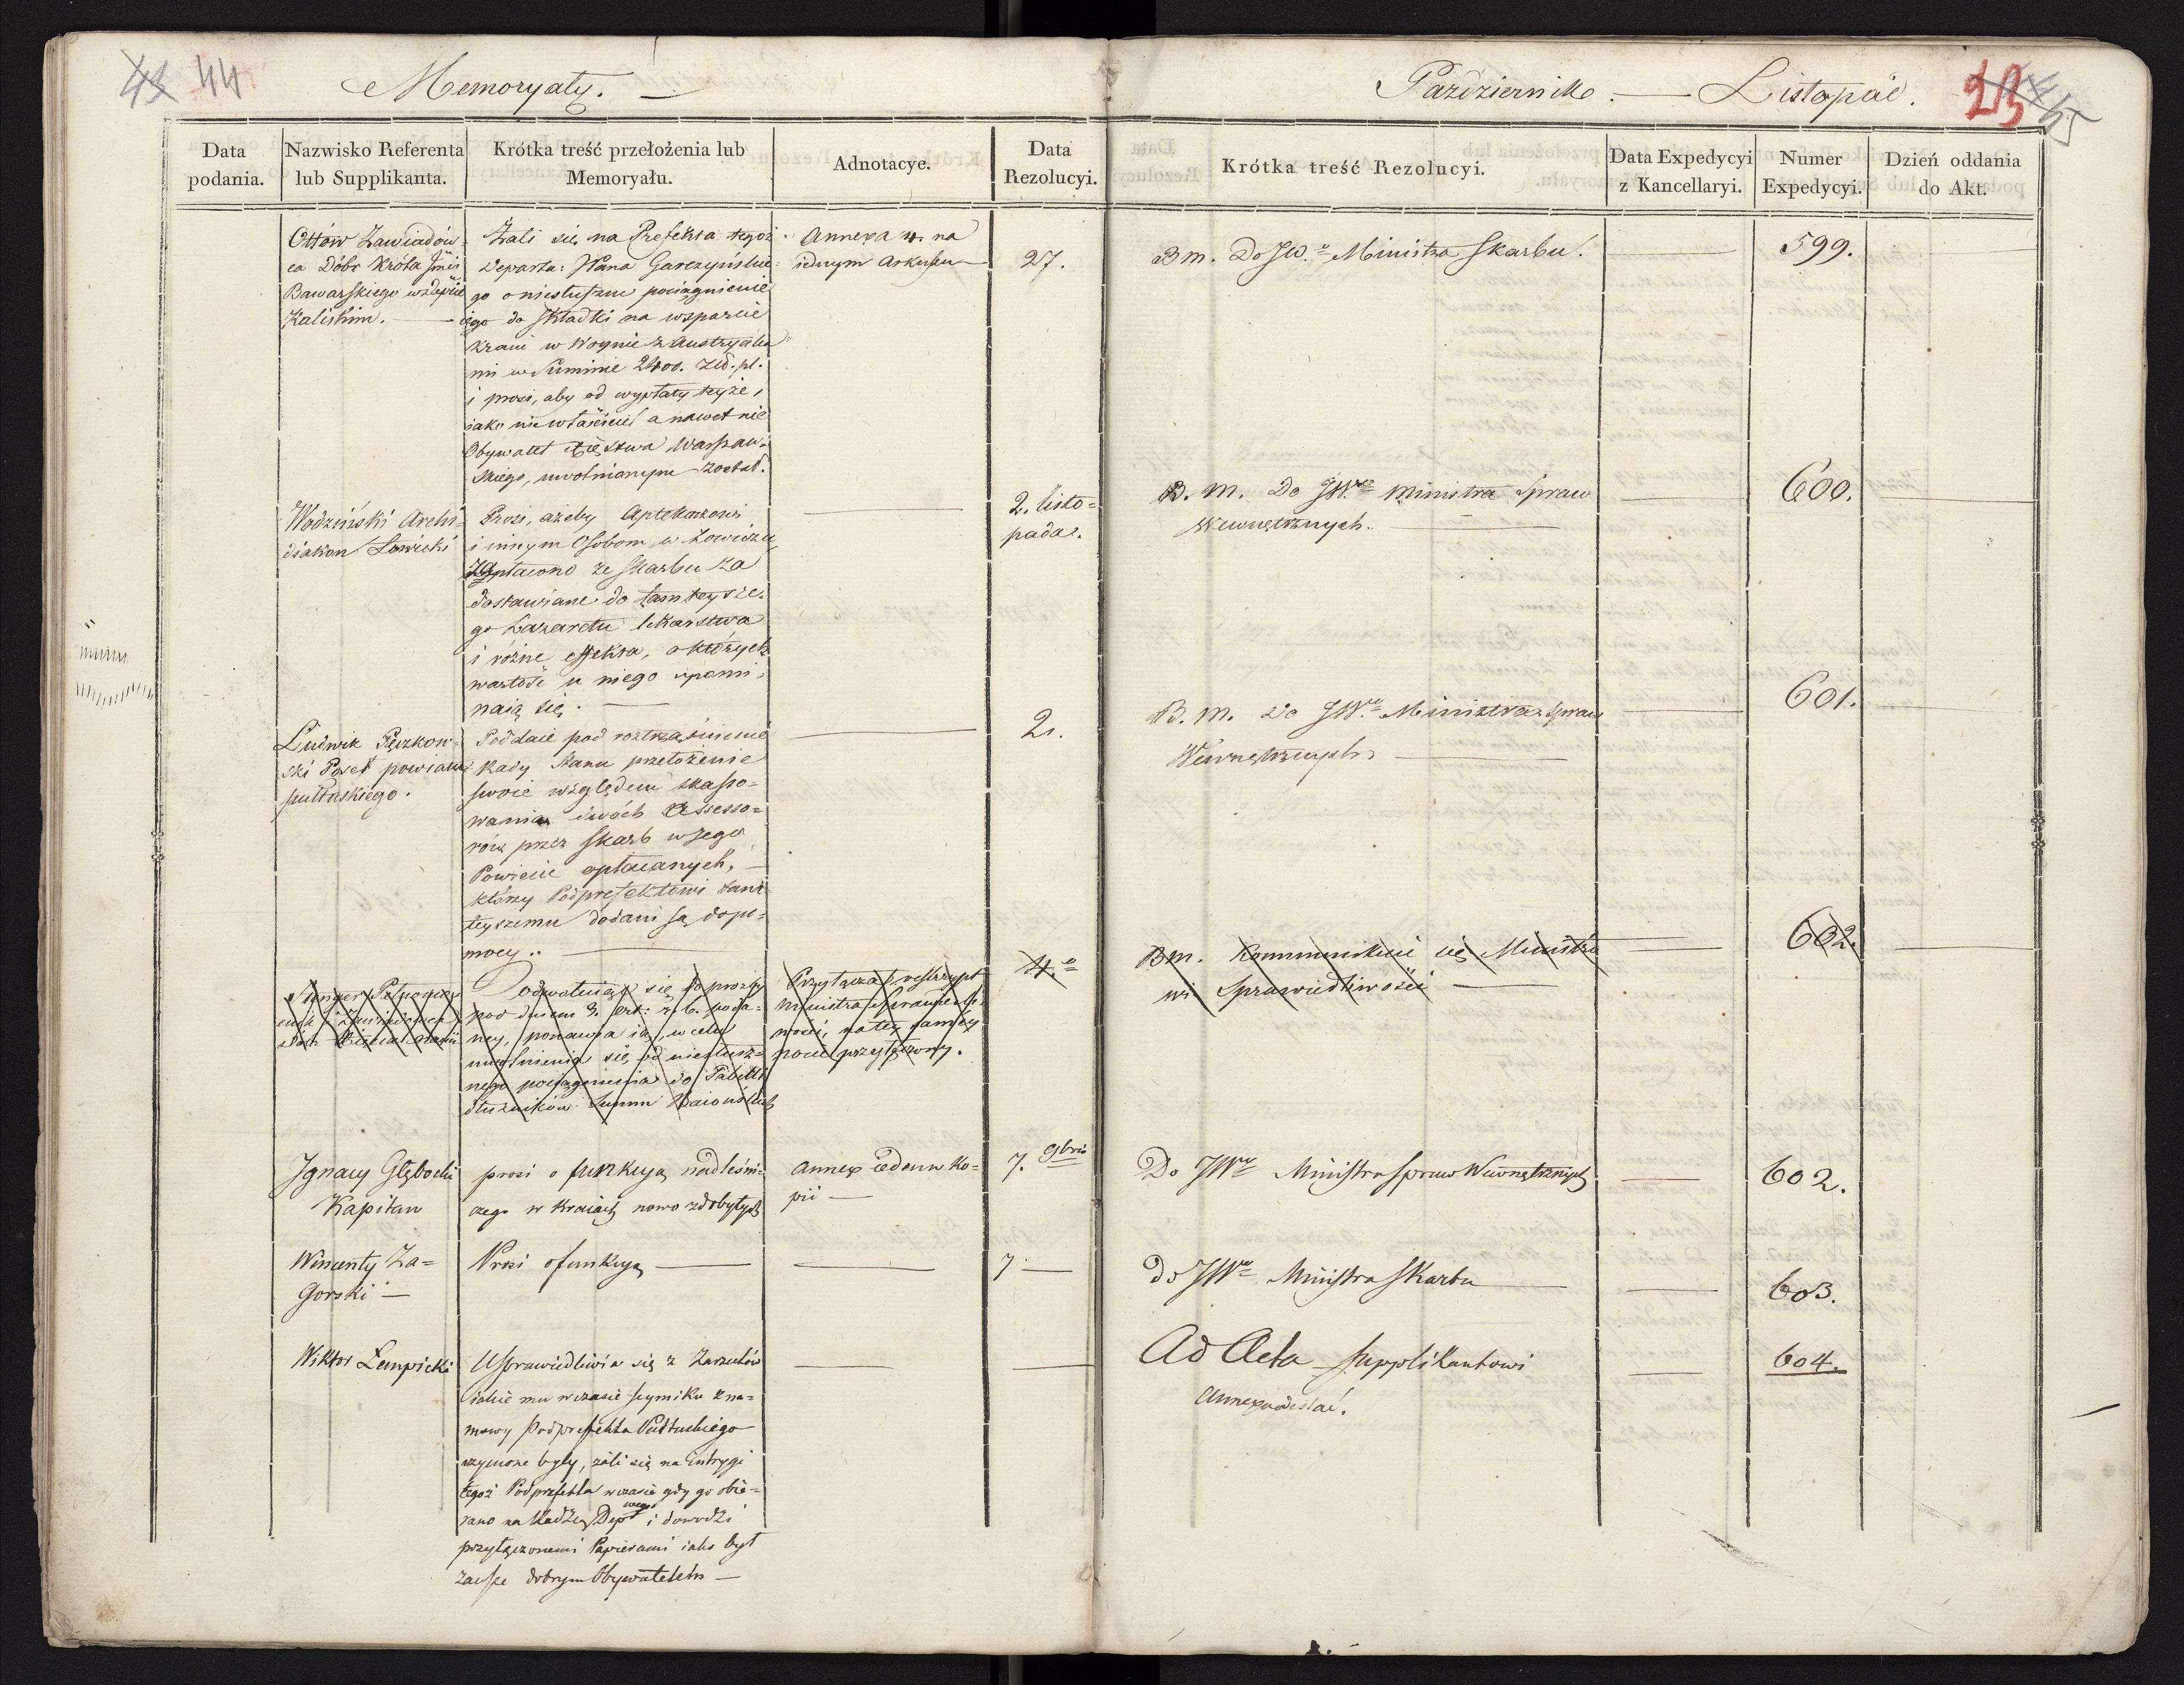 44
Memoryały. —
Październik. — Listopad.
23
Data podania.
Nazwisko Referenta lub Supplikanta.
Krótka treść przełożenia lub Memoryału.
Adnotacye.
Data Rezolucyi.
Krótka treść Rezolucyi.
Data Expedycyi z Kancellaryi.
Numer Expedycyi.
Dzień oddania do Akt.
Ottów Zawiadow=
ca Dóbr Króla Jmci
Bawarskiego w Depcie
Kaliskim. —
Żali się na Prefekta tegoż
Departa: JPana Garczyńskie=
go o niesłuszne pociągnienie
iego do składki na wsparcie
kraiu w Woynie z Austryaka=
mi w Summie 2400. złd. pl.
i prosi, aby od wypłaty teyże,
iako nie właściciel a nawet nie
Obywatel Xięstwa Warszaw=
skiego, uwolnionym został.
Annexa 4. na
iednym Arkuszu —
27.
Bm. Do JW.º Ministra Skarbu.
599.
Wodziński Archi=
diakon Łowicki
Prosi, ażeby Aptekarzowi
i innym Osobom w Łowiczu
zapłacono ze Skarbu za
dostawiane do tamteysze=
go Lazaretu lekarstwa
i różne effekta, o których
wartość u niego upomi=
naią się. —
2. Listo=
pada.
B. M. Do JW.go Ministra Spraw
Wewnętrznych. —
600.
Ludwik Pęczkow=
ski Poseł powiatu
pułtuskiego.
Poddaie pod roztrząśnienie
Rady Stanu przełożenie
swoie względem skasso=
wania dwóch Assesso=
rów przez Skarb w Jego
Powiecie opłacanych, —
którzy Podprefektowi tam=
teyszemu dodani są do po=
mocy. —
2.
B. M. Do JW.go Ministra Spraw
Wewnętrznych.
601.
odwołuiąc się do prośby
pod dniem 3. 8br: r. b. poda=
ney, ponawia ią, w celu
uwolnienia się od niesłusz=
nego pociągnienia do Tabelli
dłużników Summ Baiońskich
Przyłącza reskrypt
Ministra Sprawiedli=
wości, na tey samey
nocie przyłączony.
4.º
Bm. Kommunikuie się Ministro
wi Sprawiedliwości —
602.
Ignacy Głębocki
Kapitan
prosi o funkcyą nadleśni=
czego w Kraiach nowo zdobytych
Annex ieden w Ko=
pii —
7. 9bris
Do JWgo Ministra Spraw Wewnętrznych
602.
Wincenty Za=
Gorski —
Prosi o funkcyą —
7. —
Do JWgo Ministra Skarbu
603.
Wiktor Łempicki
Usprawiedliwia się z Zarzutów
iakie mu w czasie seymiku z na=
mowy Podprefekta Pułtuskiego
czynione były, żali się na intrygi
tegoż Podprefekta w czasie gdy go obie=
rano na Radźcę Deptwego i dowodzi
przyłączonemi Papierami iako był
zawsze dobrym Obywatelem —
Ad Acta Supplikantowi
annexa odesłać.
604.